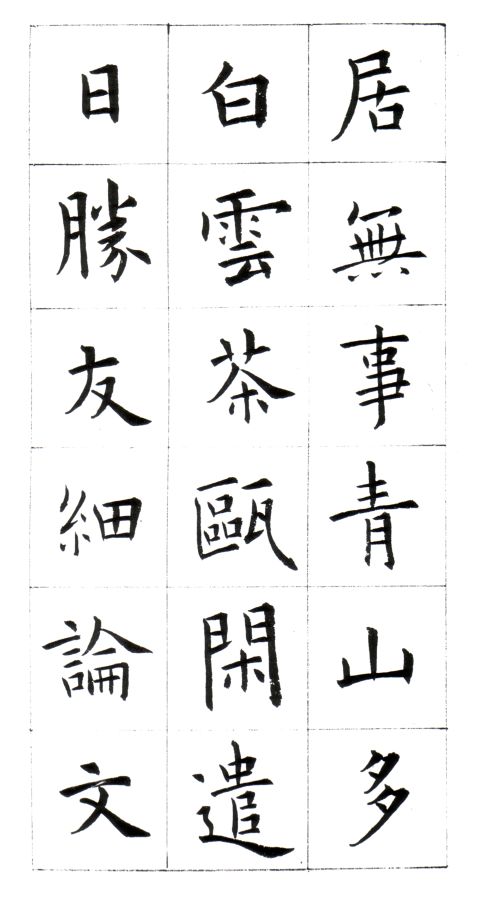 居無事青山多
白雲茶甌閑遣
日勝友細論文